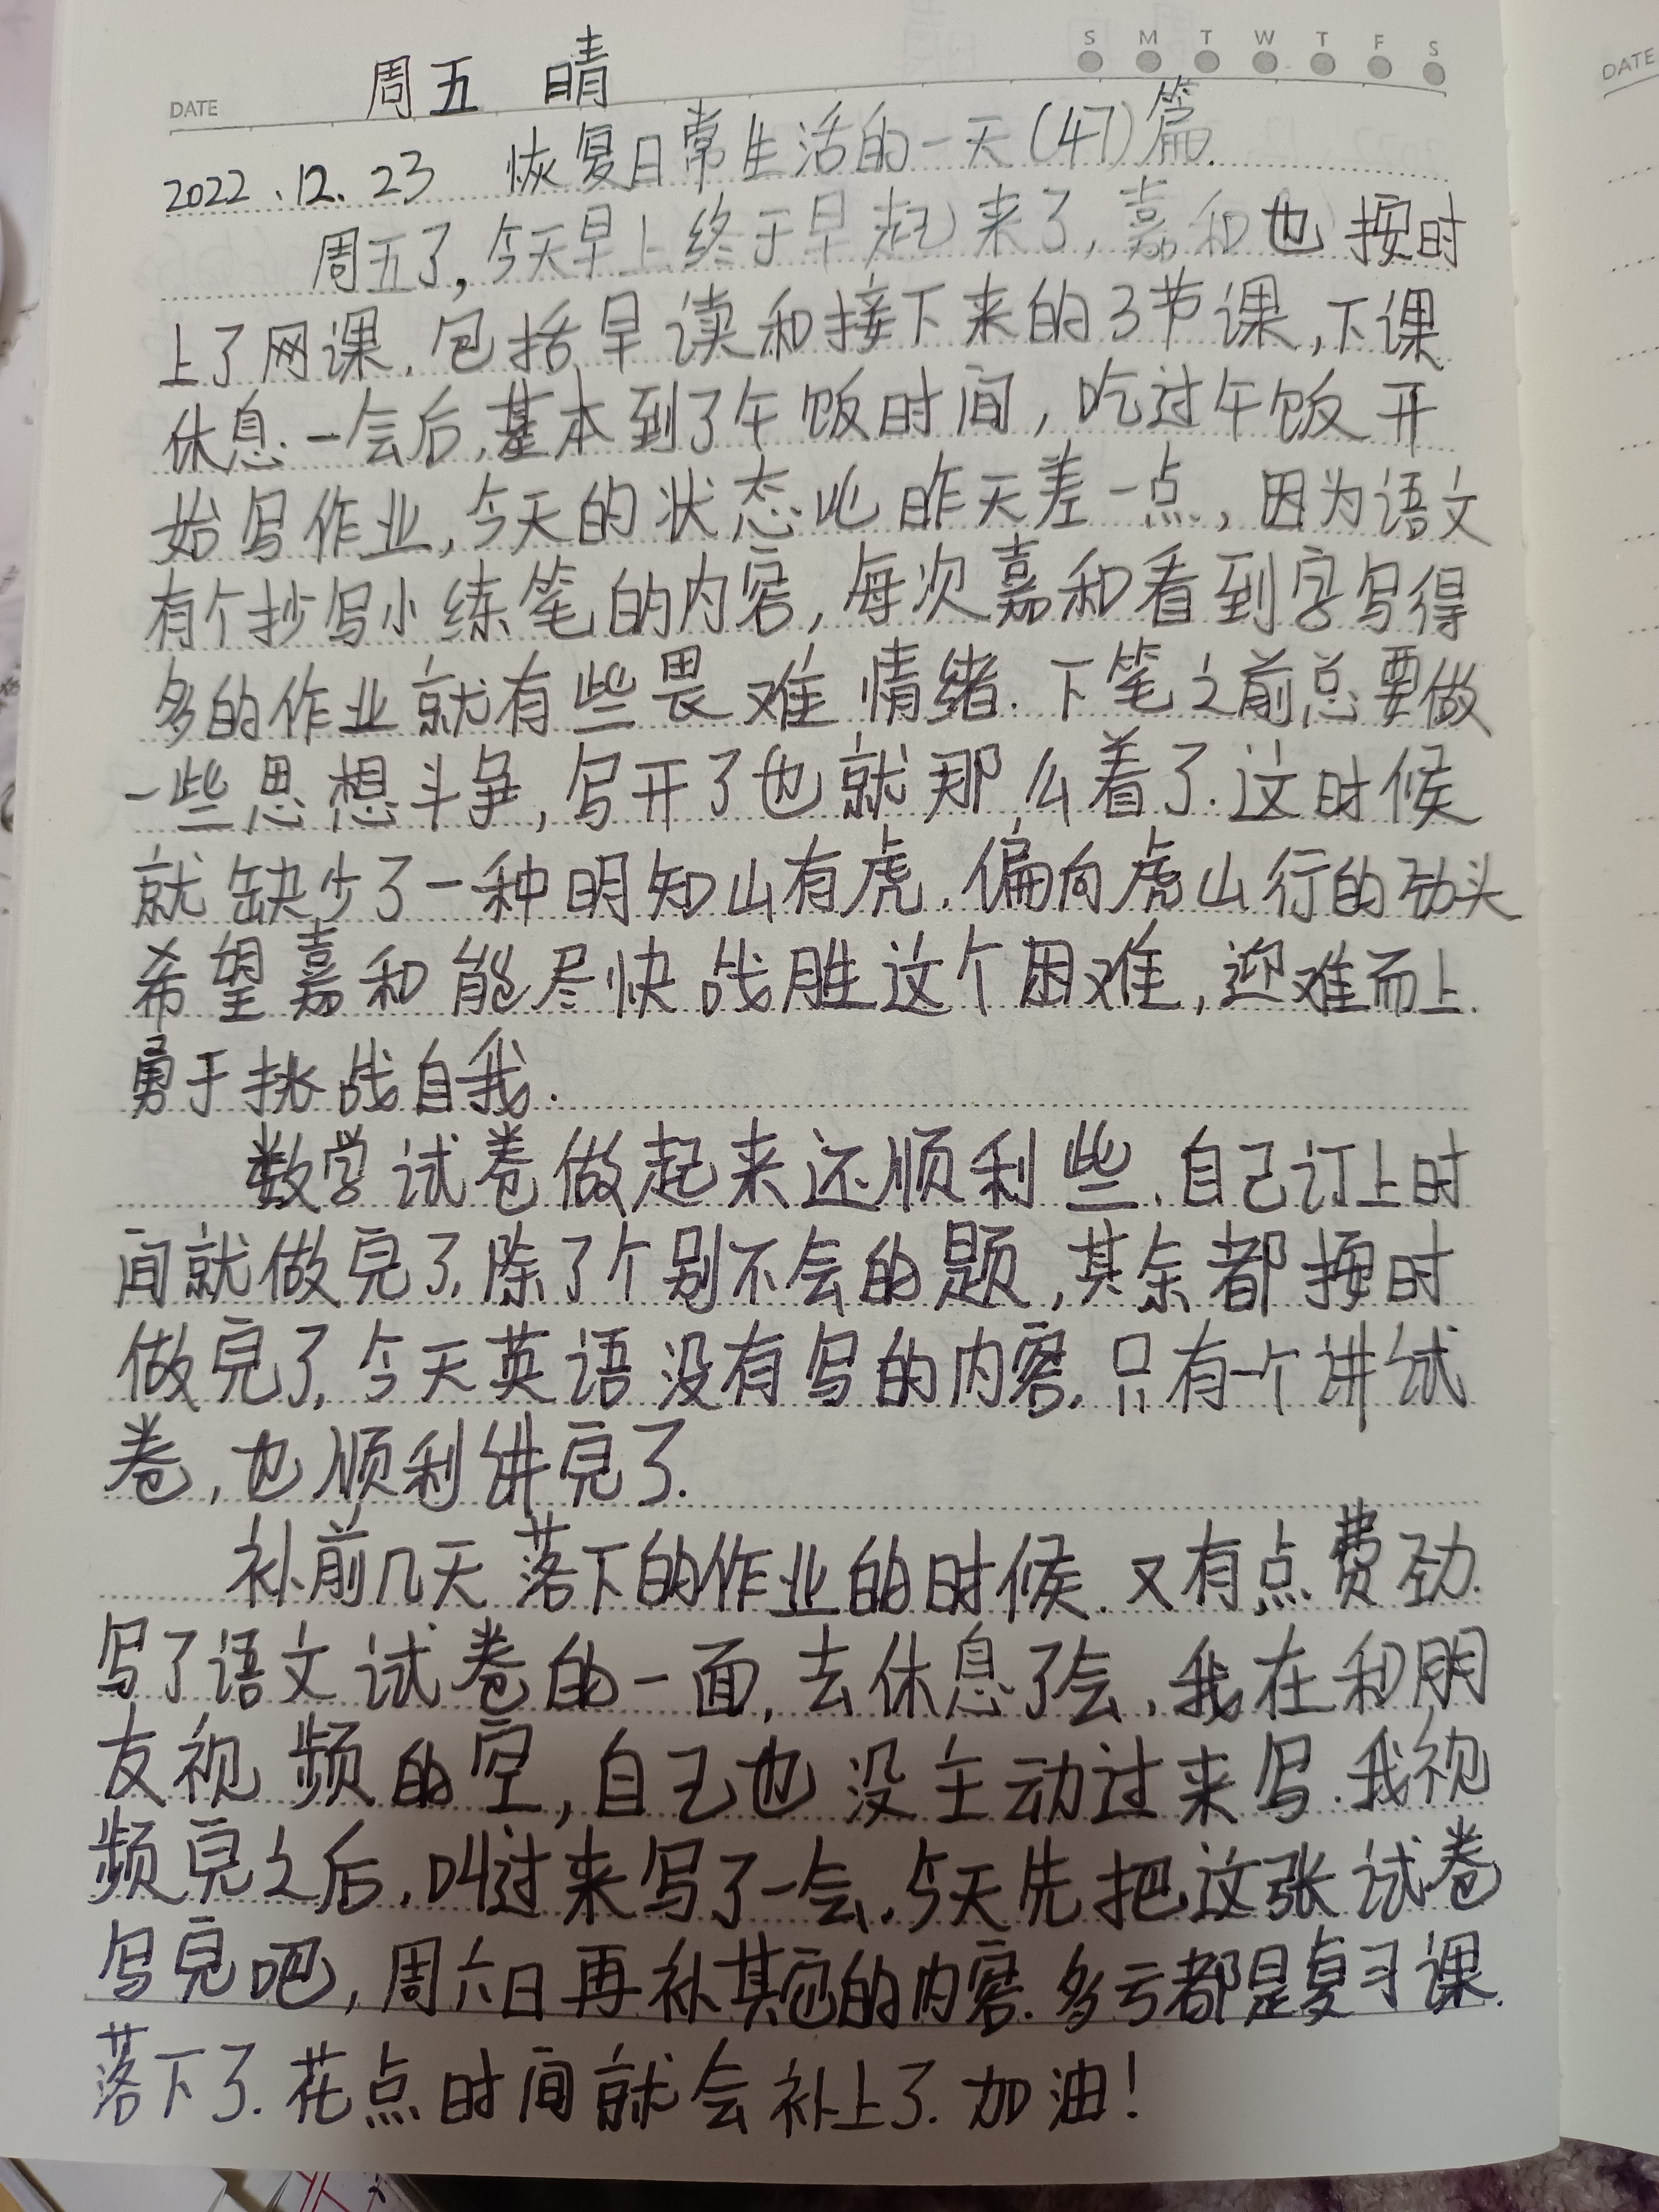 S M T W T F S
DATE 周五 晴
DATE
2022.12.23 恢复日常生活的一天(47)篇.
周五了,今天早上终于早起来了,嘉和也按时
上了网课.包括早读和接下来的3节课,下课
休息一会后,基本到了午饭时间,吃过午饭开
始写作业,今天的状态比昨天差一点,因为语文
有个抄写小练笔的内容,每次嘉和看到字写得
多的作业就有些畏难情绪.下笔之前总要做
一些思想斗争,写开了也就那么着了.这时候
就缺少了一种明知山有虎.偏向虎山行的劲头
希望嘉和能尽快战胜这个困难,迎难而上.
勇于挑战自我.
数学试卷做起来还顺利些.自己订上时
间就做完了,除了个别不会的题,其余都按时
做完了,今天英语没有写的内容,只有一个讲试
卷,也顺利讲完了.
补前几天落下的作业的时候.又有点费劲.
写了语文试卷的一面,去休息了会,我在和朋
友视频的空,自己也没主动过来写.我视
频完之后,叫过来写了一会.今天先把这张试卷
写完吧,周六日再补其它的内容.多亏都是复习课.
落下了.花点时间就会补上了.加油!